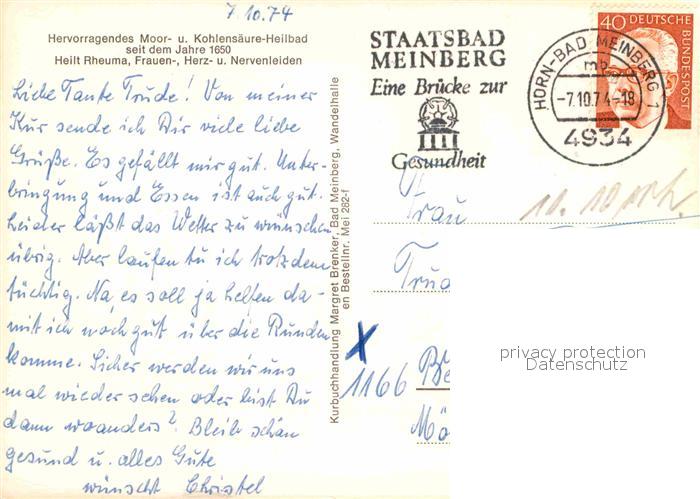 7.10.74
Hervorragendes Moor- u. Kohlensäure-Heilbad
seit dem Jahre 1650
Heilt Rheuma, Frauen-, Herz- u. Nervenleiden
Liebe Tante Trude! Von meiner
Kur sende ich Dir viele liebe
Grüße. Es gefällt mir gut. Unter-
bringung und Essen ist auch gut.
Leider läßt das Wetter zu wünschen
übrig. Aber laufen tu ich trotzdem
tüchtig. Na, es soll ja helfen da-
mit ich noch gut über die Runden
komme. Sicher werden wir uns
mal wieder sehen oder bist Du
dann woanders? Bleib schön
gesund u. alles Gute
wünscht Christel
Kurbuchhandlung Margret Brenker, Bad Meinberg, Wandelhalle
en Bestellnr. Mei 282-f
STAATSBAD
MEINBERG
Eine Brücke zur
Gesundheit
HORN-BAD MEINBERG 1
mb
-7.10.74-18
4934
40 DEUTSCHE
BUNDESPOST
Frau
Trud
1166 Be
Mö
privacy protection
Datenschutz